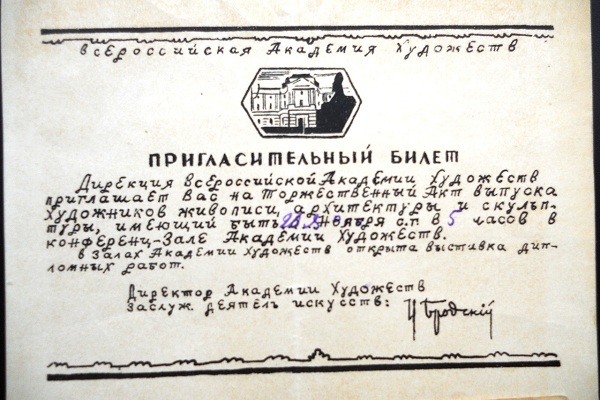 Всероссийская Академия Художеств
ПРИГЛАСИТЕЛЬНЫЙ БИЛЕТ
Дирекция Всероссийской Академии Художеств
приглашает Вас на торжественный Акт выпуска
художников живописи, архитектуры и скульп-
туры, имеющий быть ноября с.г. в 5 часов в
конференц-зале Академии Художеств.
В залах Академии Художеств открыта выставка дип-
ломных работ.
Директор Академии Художеств
Заслуж. деятель искусств: И Бродскiй